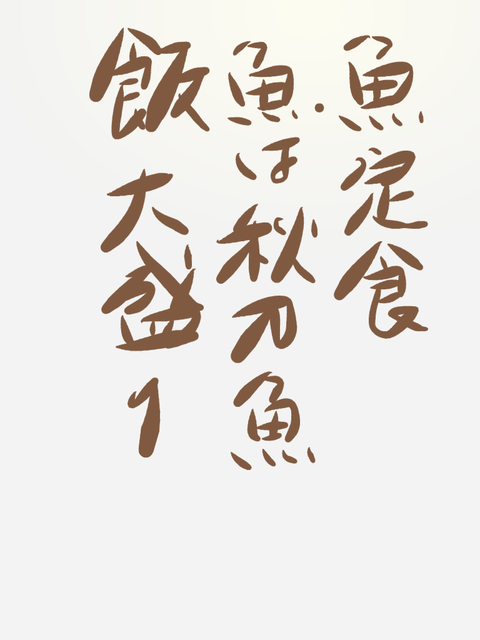 魚定食
・魚は秋刀魚
飯大盛1